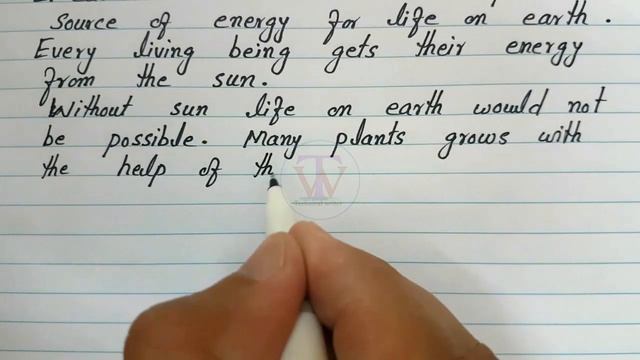 Source of energy for life on earth.
Every living being gets their energy
from the sun.
Without sun life on earth would not
be possible. Many plants grows with
the help of th